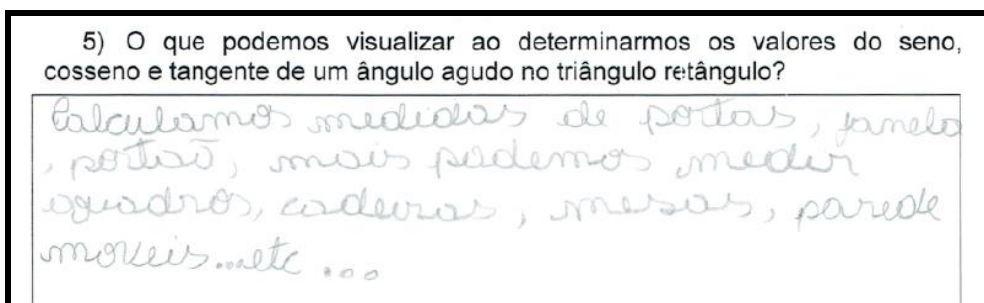 5) O que podemos visualizar ao determinarmos os valores do seno,
cosseno e tangente de um ângulo agudo no triângulo retângulo?
Calculamos medidas de portas, janela
, portão, mais podemos medir
quadros, cadeiras, mesas, parede
moveis...etc...